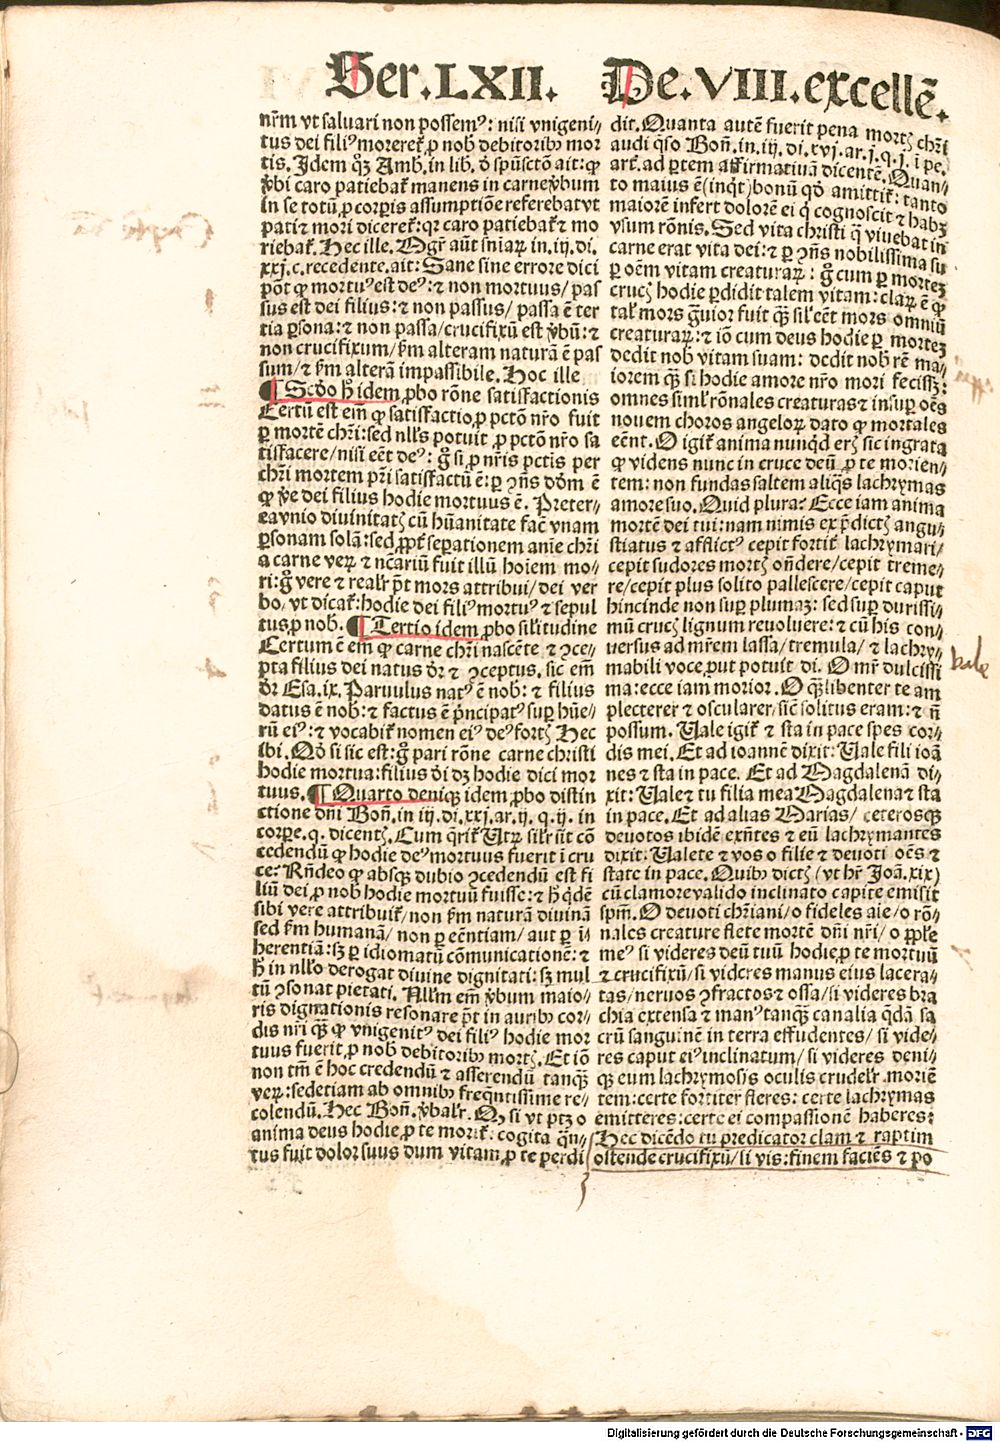 Ser.LXII. De.VIII.excellē.
nr̄m vt saluari non possemꝰ: nisi vnigeni⸗
tus dei filiꝰ morereť ꝓ nob debitoribꝫ mor
tis. Idem qꝫ Amb. in lib. ð spūsctō ait: ꝙ
v̄bi caro patiebať manens in carne v̄bum
In se totū, ꝓ corpis assumptiōe referebat vt
pati ⁊ mori dicereť: qꝛ caro patiebať ⁊ mo
riebať. Hec ille. Mgr̄ aūt sn̄iaꝝ in .iij. di.
xxj. c. recedente. ait: Sane sine errore dici
pōt ꝙ mortuꝰ est deꝰ: ⁊ non mortuus/ pas
sus est dei filius: ⁊ non passus/ passa ē ter
tia ꝑsona: ⁊ non passa/ crucifixū est v̄bū: ⁊
non crucifixum/ ẜm alteram naturā ē pas
sum/ ⁊ ẜm alterā impassibile. Hoc ille
¶ Scd̄o h̄ idem ꝓbo rōne satisfactionis
Certū est em̄ ꝙ satisfactio ꝓ pctōn nr̄o fuit
ꝑ mortē chr̄i: sed nll̄s potuit ꝓ pctōn nr̄o sa
tisfacere/ nisi eēt deꝰ: g̊ si ꝓ nr̄is pctis per
chr̄i mortem pr̄i satisfactū ē: ꝑ ꝯn̄s dōm ē
ꝙ v̄e dei filius hodie mortuus ē. Preter⸗
ea vnio diuinitatꝭ cū hūanitate fac̄ vnam
ꝑsonam solā: sed ꝓpt̄ seꝑationem anīe chr̄i
a carne veꝝ ⁊ nc̄ariū fuit illū hoīem mo⸗
ri: g̊ vere ⁊ realr̄ pn̄t mors attribui/ dei ver
bo, vt dicať: hodie dei filiꝰ mortuꝰ ⁊ sepul
tus ꝓ nob. ¶ Tertio idem ꝓbo silitudine
Certum ē em̄ ꝙ carne chr̄i nascēte ⁊ ꝯce⸗
pta filius dei natus dr̄ ⁊ ꝯceptus. sic em̄
dr̄ Esa. ix. Paruulus natꝰ ē nob: ⁊ filius
datus ē nob: ⁊ factus ē pn̄cipatꝰ suꝑ hūe⸗
rū eiꝰ: ⁊ vocabiť nomen eiꝰ deꝰ fortꝭ Hec
ibi. Qd̄ si sic est: g̊ pari rōne carne christi
hodie mortua: filius dei dꝫ hodie dici mor
tuus. ¶ Quarto deniqꝫ idem ꝓbo distin
ctione dn̄i Bon̄. in iij. di. xxj. ar. ij. q. ij. in
corpe. q. dicentꝭ. Cum q̄riť Utꝝ sil̄r sit cō
cedendū ꝙ hodie deꝰ mortuus fuerit ī cru
ce: Rn̄deo ꝙ absqꝫ dubio ꝯcedendū est fi
liū dei ꝓ nob hodie mortuū fuisse: ⁊ h̄ qd̄ē
sibi vere attribuiť/ non ẜm naturā diuinā
sed ẜm humanā/ non ꝑ eēntiam/ aut ꝑ ī⸗
herentiā: sꝫ ꝑ idiomatū cōmunicationē: ⁊
h̄ in nllo derogat diuine dignitati: sꝫ mul
tū ꝯsonat pietati. Nllm̄ em̄ v̄bum maio⸗
ris dignationis resonare pōt in auribꝫ cor⸗
dis nr̄i q̄ꝫ ꝙ vnigenitꝰ dei filiꝰ hodie mor
tuus fuerit ꝓ nob debitoribꝫ mortꝭ. Et iō
non tm̄ ē hoc credendū ⁊ asserendū tanq̄ꝫ
veꝝ: sed etiam ab omnibꝫ frequētissime re⸗
colendū. Hec Bon̄. v̄balr̄. Qꝫ si vt ptꝫ o
anima deus hodie ꝓ te moriť: cogita q̄n⸗
tus fuit dolor suus dum vitam ꝓ te perdi
dit. Quanta autē fuerit pena mortꝭ chr̄i
audi q̄so Bon̄. in. iij. di. xvj. ar. j. q. j. ī pe.
art. ad ꝑtem affirmatiuā dicentē. Quan⸗
to maius ē (inqt) bonū qd̄ amittiť: tanto
maiorē infert dolorē ei q̄ cognoscit ⁊ habꝫ
vsum rōnis. Sed vita christi q̄ viuebat in
carne erat vita dei: ⁊ ꝑ ꝯn̄s nobilissima su
ꝑ oēm vitam creaturaꝝ: g̊ cum ꝑ mortez
crucꝭ hodie ꝑdidit talem vitam: claꝝ ē ꝙ
taľ mors g̊uior fuit q̄ꝫ sil̄ cēnt mors omniū
creaturaꝝ: ⁊ iō cum deus hodie ꝑ mortez
dedit nob vitam suam: dedit nob rē ma⸗
iorem q̄ꝫ si hodie amore nr̄o mori fecissꝫ:
omnes siml̄ rōnales creaturas ⁊ insuꝑ oēs
nouem choros angeloꝝ dato ꝙ mortales
eēnt. O igiť anima nunqd̄ erꝭ sic ingrata
ꝙ videns nunc in cruce deū ꝓ te morien⸗
tem: non fundas saltem aliq̄s lachrymas
amore suo. Quid plura: Ecce iam anima
mortē dei tui: nam nimis ex p̄dictꝭ angu⸗
stiatus ⁊ afflictꝰ cepit fortiť lachrymari/
cepit sudores mortꝭ on̄dere/ cepit treme⸗
re/ cepit plus solito pallescere/ cepit caput
hincinde non suꝑ plumaꝫ: sed suꝑ durissi⸗
mū crucꝭ lignum reuoluere: ⁊ cū his con⸗
uersus ad mr̄em lassa/ tremula/ ⁊ lachry⸗
mabili voce, put potuit di. O mr̄ dulcissi
ma: ecce iam morior. O q̄ꝫ libenter te am
plecterer ⁊ oscularer, sic̄ solitus eram: ⁊ n̄
possum. Uale igiť ⁊ sta in pace spes cor⸗
dis mei. Et ad ioannē dixit: Uale fili ioā
nes ⁊ sta in pace. Et ad Magdalenā di⸗
xit: Uale ⁊ tu filia mea Magdalena ⁊ sta
in pace. Et ad alias Marias/ ceterosqꝫ
deuotos ibidē exn̄tes ⁊ eū lachrymantes
dixit: Ualete ⁊ vos o filie ⁊ deuoti oēs ⁊
state in pace. Quibꝫ dictꝭ (vt hr̄ Joā. xix)
cū clamore valido inclinato capite emisit
spm̄. O deuoti chr̄iani/ o fideles aīe/ o rō⸗
nales creature flete mortē dn̄i nr̄i/ o ppl̄e
meꝰ si videres deū tuū hodie ꝓ te mortuū
⁊ crucifixū/ si videres manus eius lacera⸗
tas/ neruos ꝯfractos ⁊ ossa/ si videres bra
chia extensa ⁊ manꝰ tanq̄ꝫ canalia q̄dā sa
crū sanguinē in terra effudentes/ si vide⸗
res caput eiꝰ inclinatum/ si videres deni⸗
qꝫ eum lachrymosis oculis crudelr̄ moriē
tem: certe fortiter fleres: certe lachrymas
emitteres: certe ei compassionē haberes:
Hec dicēdo tu predicator clam ⁊ raptim
ostende crucifixū/ si vis: finem faciēs ⁊ po
vale
Digitalisierung gefördert durch die Deutsche Forschungsgemeinschaft - DFG